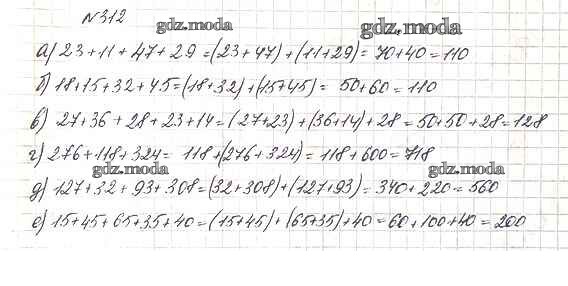 №312
gdz.moda
gdz.moda
а) 23+11+47+29=(23+47)+(11+29)=70+40=110
б) 18+15+32+45=(18+32)+(15+45)= 50+60=110
в) 27+36+28+23+14=(27+23)+(36+14)+28=50+50+28=128
г) 276+118+324= 118+(276+324)=118+600=718
gdz.moda
gdz.moda
д) 127+32+93+308=(32+308)+(127+93)=340+220=560
е) 15+45+65+35+40=(15+45)+(65+35)+40=60+100+40=200